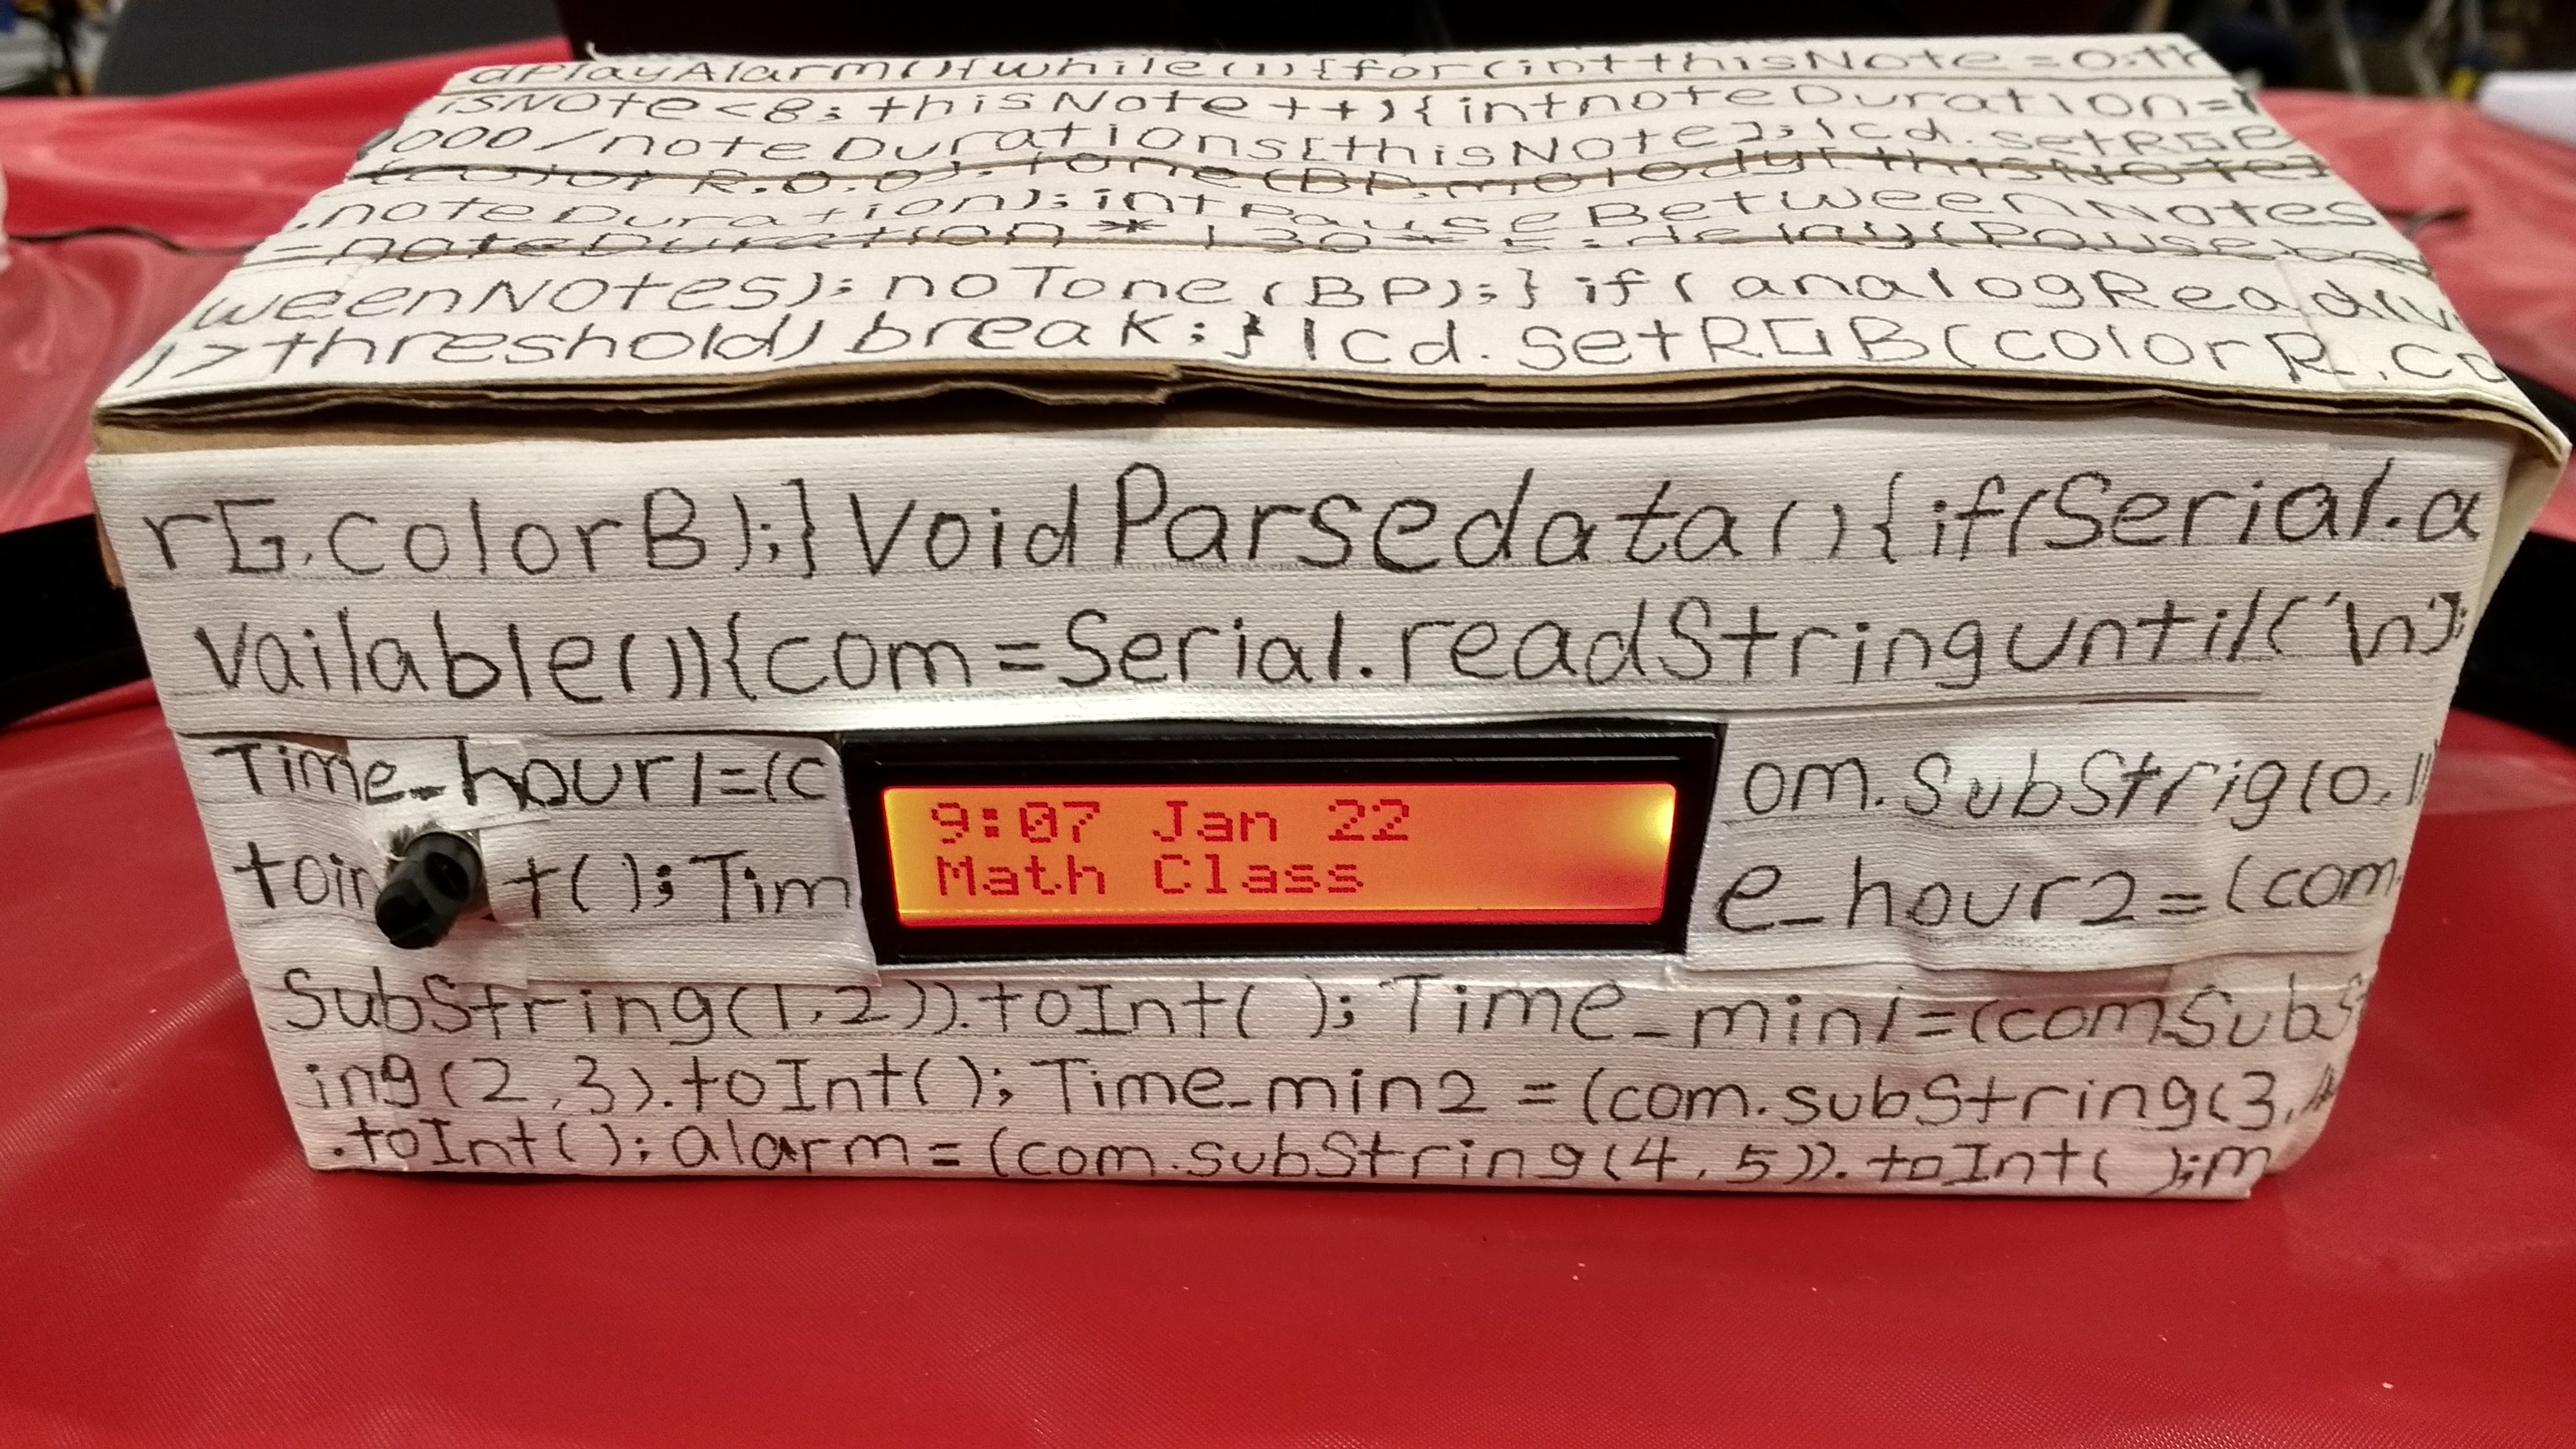 dPlayAlarm(){while(1){for(intthisNote=0;th
isNote<8;thisNote++){intnoteDuration=1
000/noteDurations[thisNote];lcd.setRGB
(color R,0,0);tone(BP,melody[thisNote]
,noteDuration);intPauseBetweenNotes
=noteDuration*1.30*5;delay(Pausebet
weenNotes);noTone(BP);}if(analogRead(
)>threshold)break;}lcd.setRGB(colorR,Co
rG,colorB);}VoidParsedata(){if(Serial.a
vailable()){com=Serial.readStringuntil('\n');
Time_hour1=(c
om.SubStrig(0,1)
9:07 Jan 22
Math Class
toin t();Tim
e_hour2=(com.
SubString(1,2)).toInt();Time_min1=(comSubSt
ing(2,3).toInt();Time_min2=(com.subString(3,
.toInt();alarm=(com.subString(4,5)).toInt();m